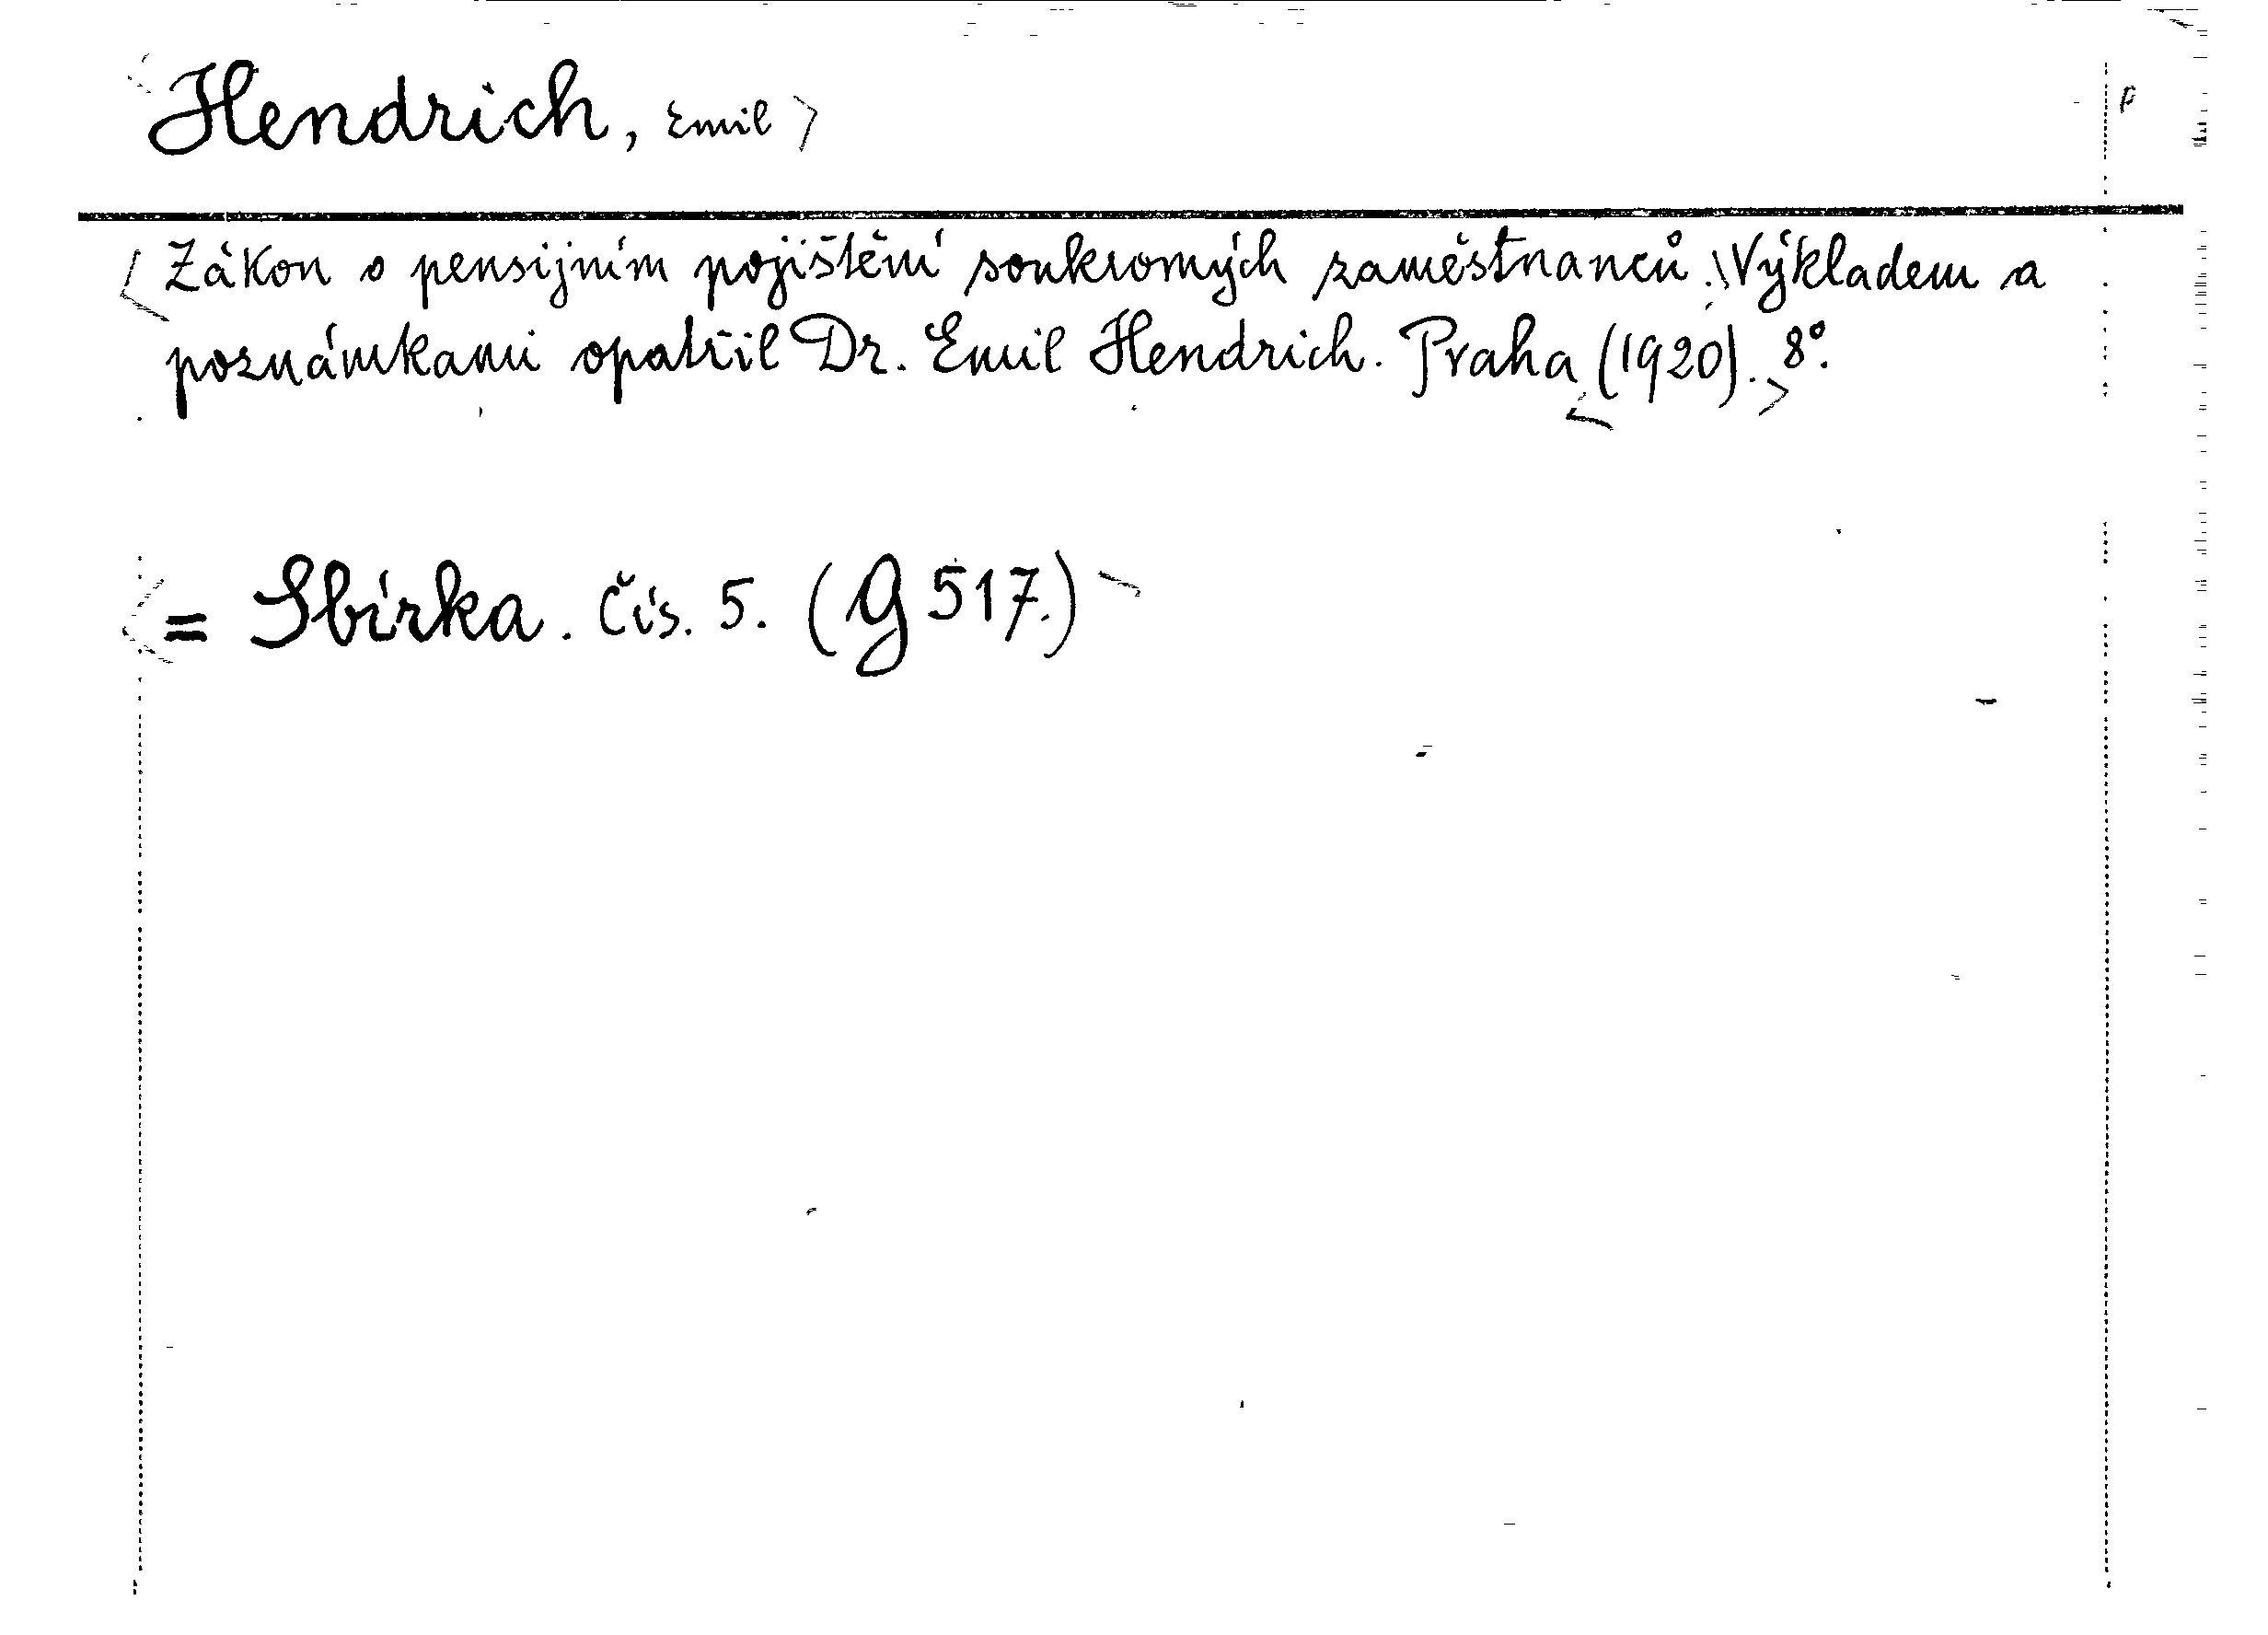 Hendrich, Emil
p
Zákon o pensijním pojištění soukromých zaměstnanců. Výkladem a
poznámkami opatřil Dr. Emil Hendrich. Praha (1920). 8°.
= Sbírka. Čís. 5. (G 517.)